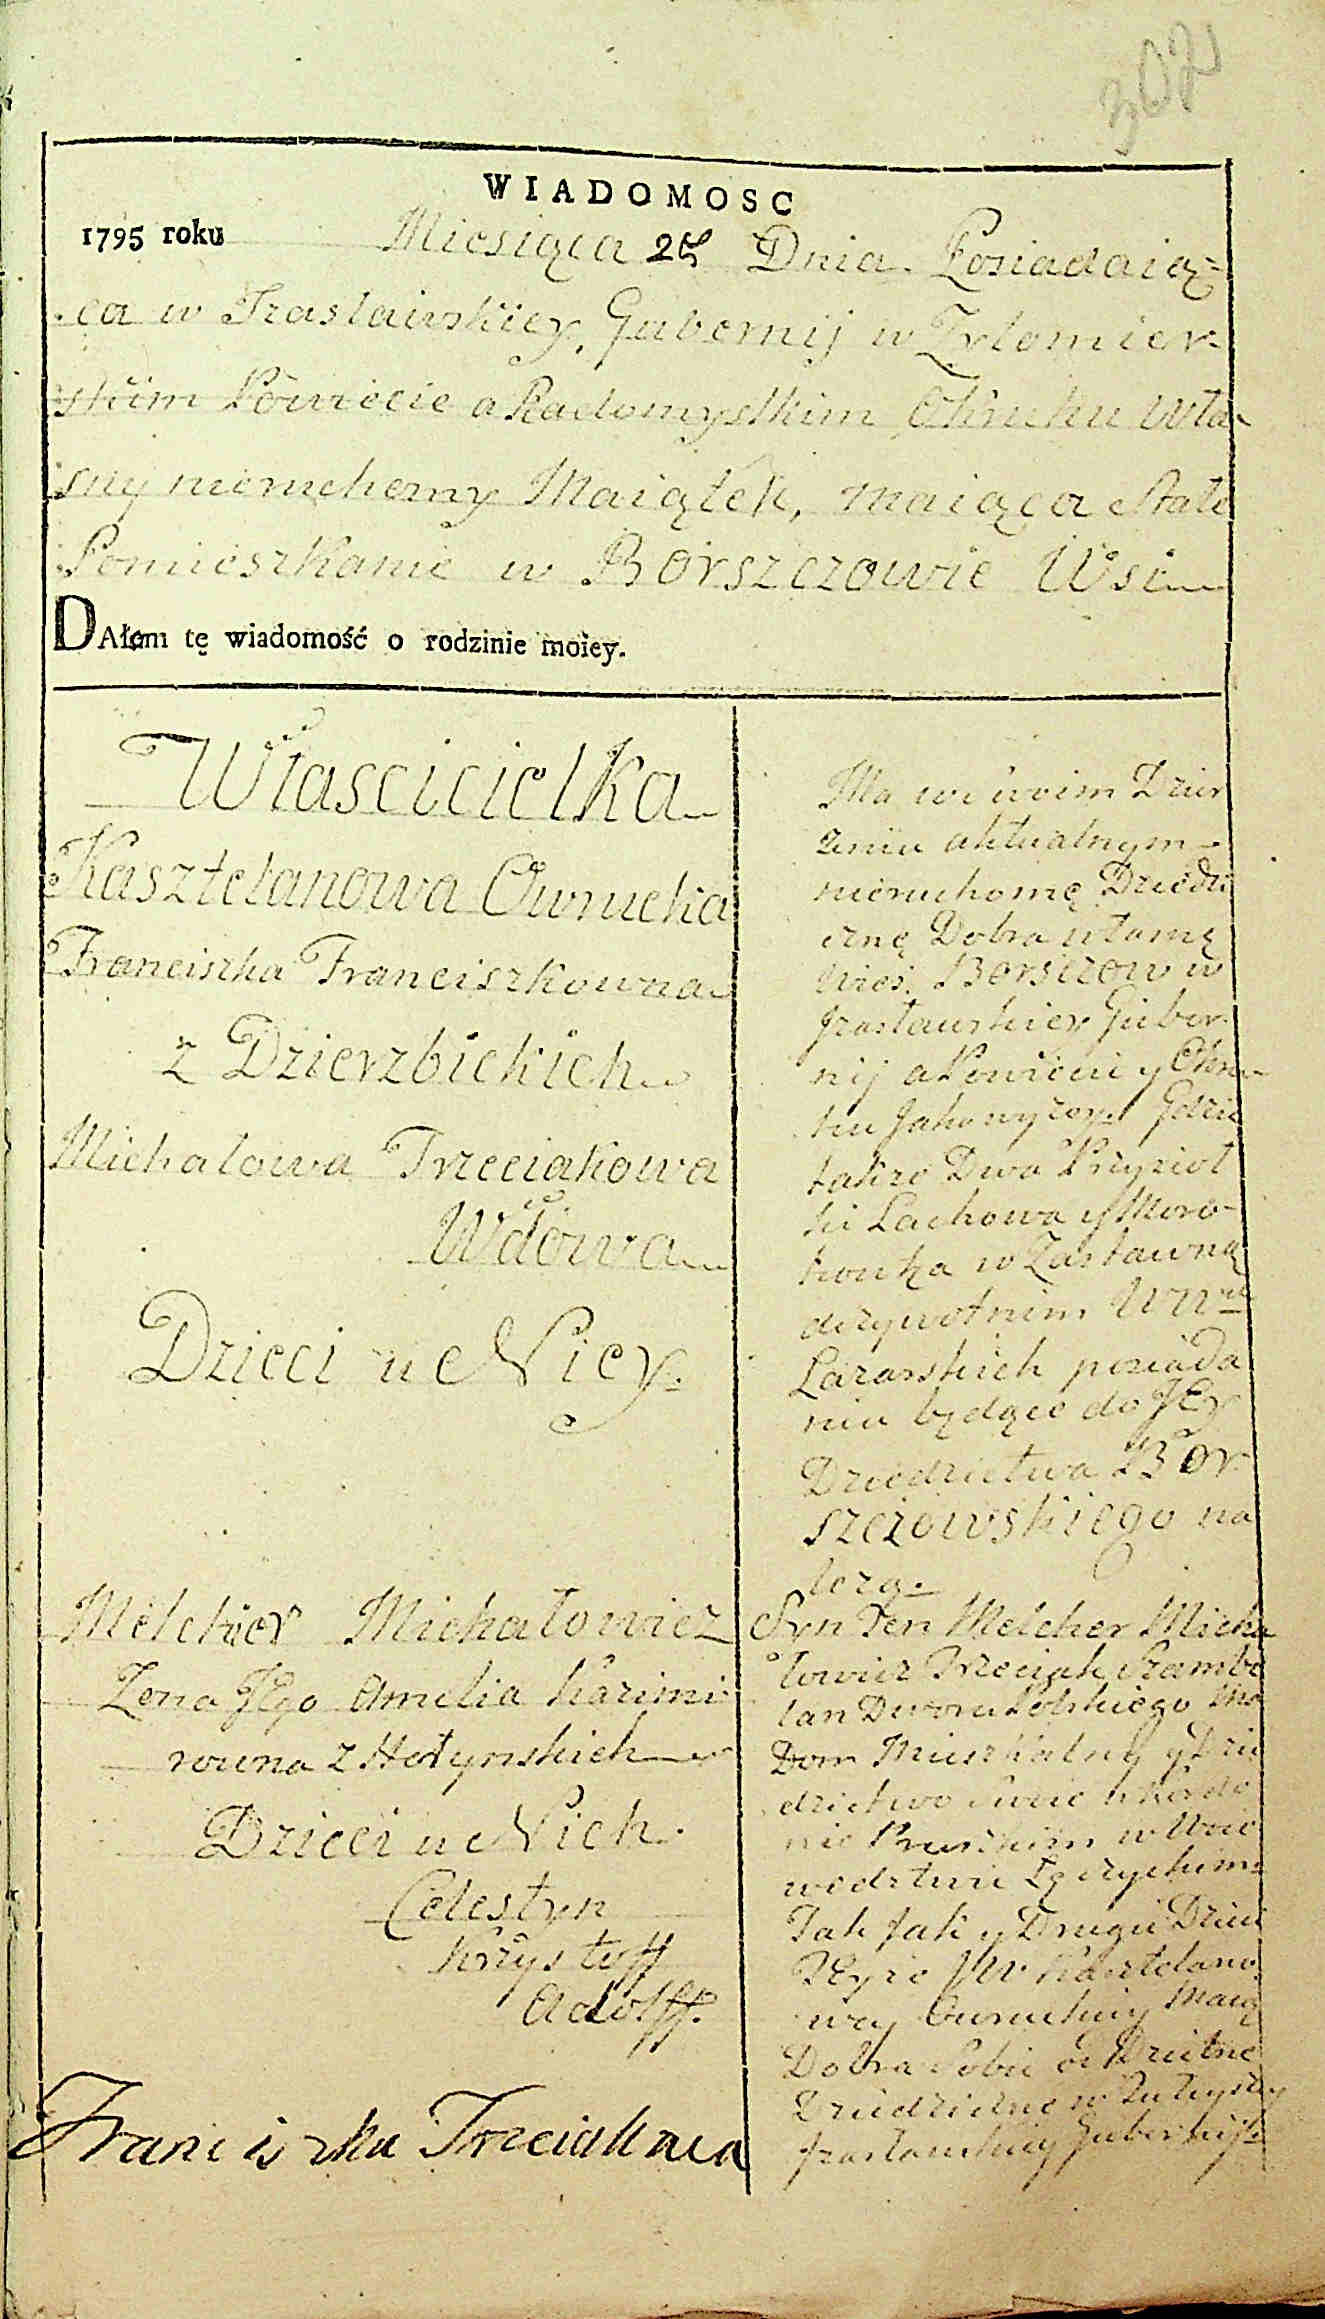 302
WIADOMOSC
1795 roku Miesiąca 25 Dnia Posiadaią-
ca w Izaslawskiey, Gubernij w Zytomier-
skim Powiecie a Radomyslkim Okruku Wła-
sny nieruchomy Maiątek, maiąca Stałe
Pomieszkanie w Borszczowie Wsi
DAłem tę wiadomość o rodzinie moiey.
Własciciel ka
Kasztelanowa Owrucka
Franciszka Franciszkowna
z Dzierzbickich
Michałowa Trzeciakowa
Wdowa
Dzieci u Niey.
Melcher Michałowicz
Zona Jego Amelia Kazimi
rowna z Hołynskich
Dzieci u Nich.
Celestyn
Krzystoff
Adolff.
Franciszka Trzeciakowa
Ma w swoim Dzier
zeniu aktualnym
nieruchomę Dziedzi
cznę Dobra
Wies Borszczow w
Izasławskiey Guber-
nij a Powiecie y Okru-
ku Jako wyzey. Gdzie
także Dwa Przysioł
ki Lachowa y Moro-
w Zastawną
dozywotnim
Łazarskich posiada
niu będące do Jey
Dziedzictwa Bor-
szczowskiego na
lezą.
Syn Ten Melcher Micha
łowicz Trzeciak Szambe
lan Dworu Polskiego Ma
Dom Mieszkalny y Dzie
dzictwo Swoie w Kordo
nie Pruskim w Woie
wodztwie Łęczyckim
Tak Jak y Drugie Dzieci
JW Kasztelano
wey Owruckiey Maią
Dobra Sobie
Dziedziczne w Tuteyszey
Izasławskiey Gubernij.